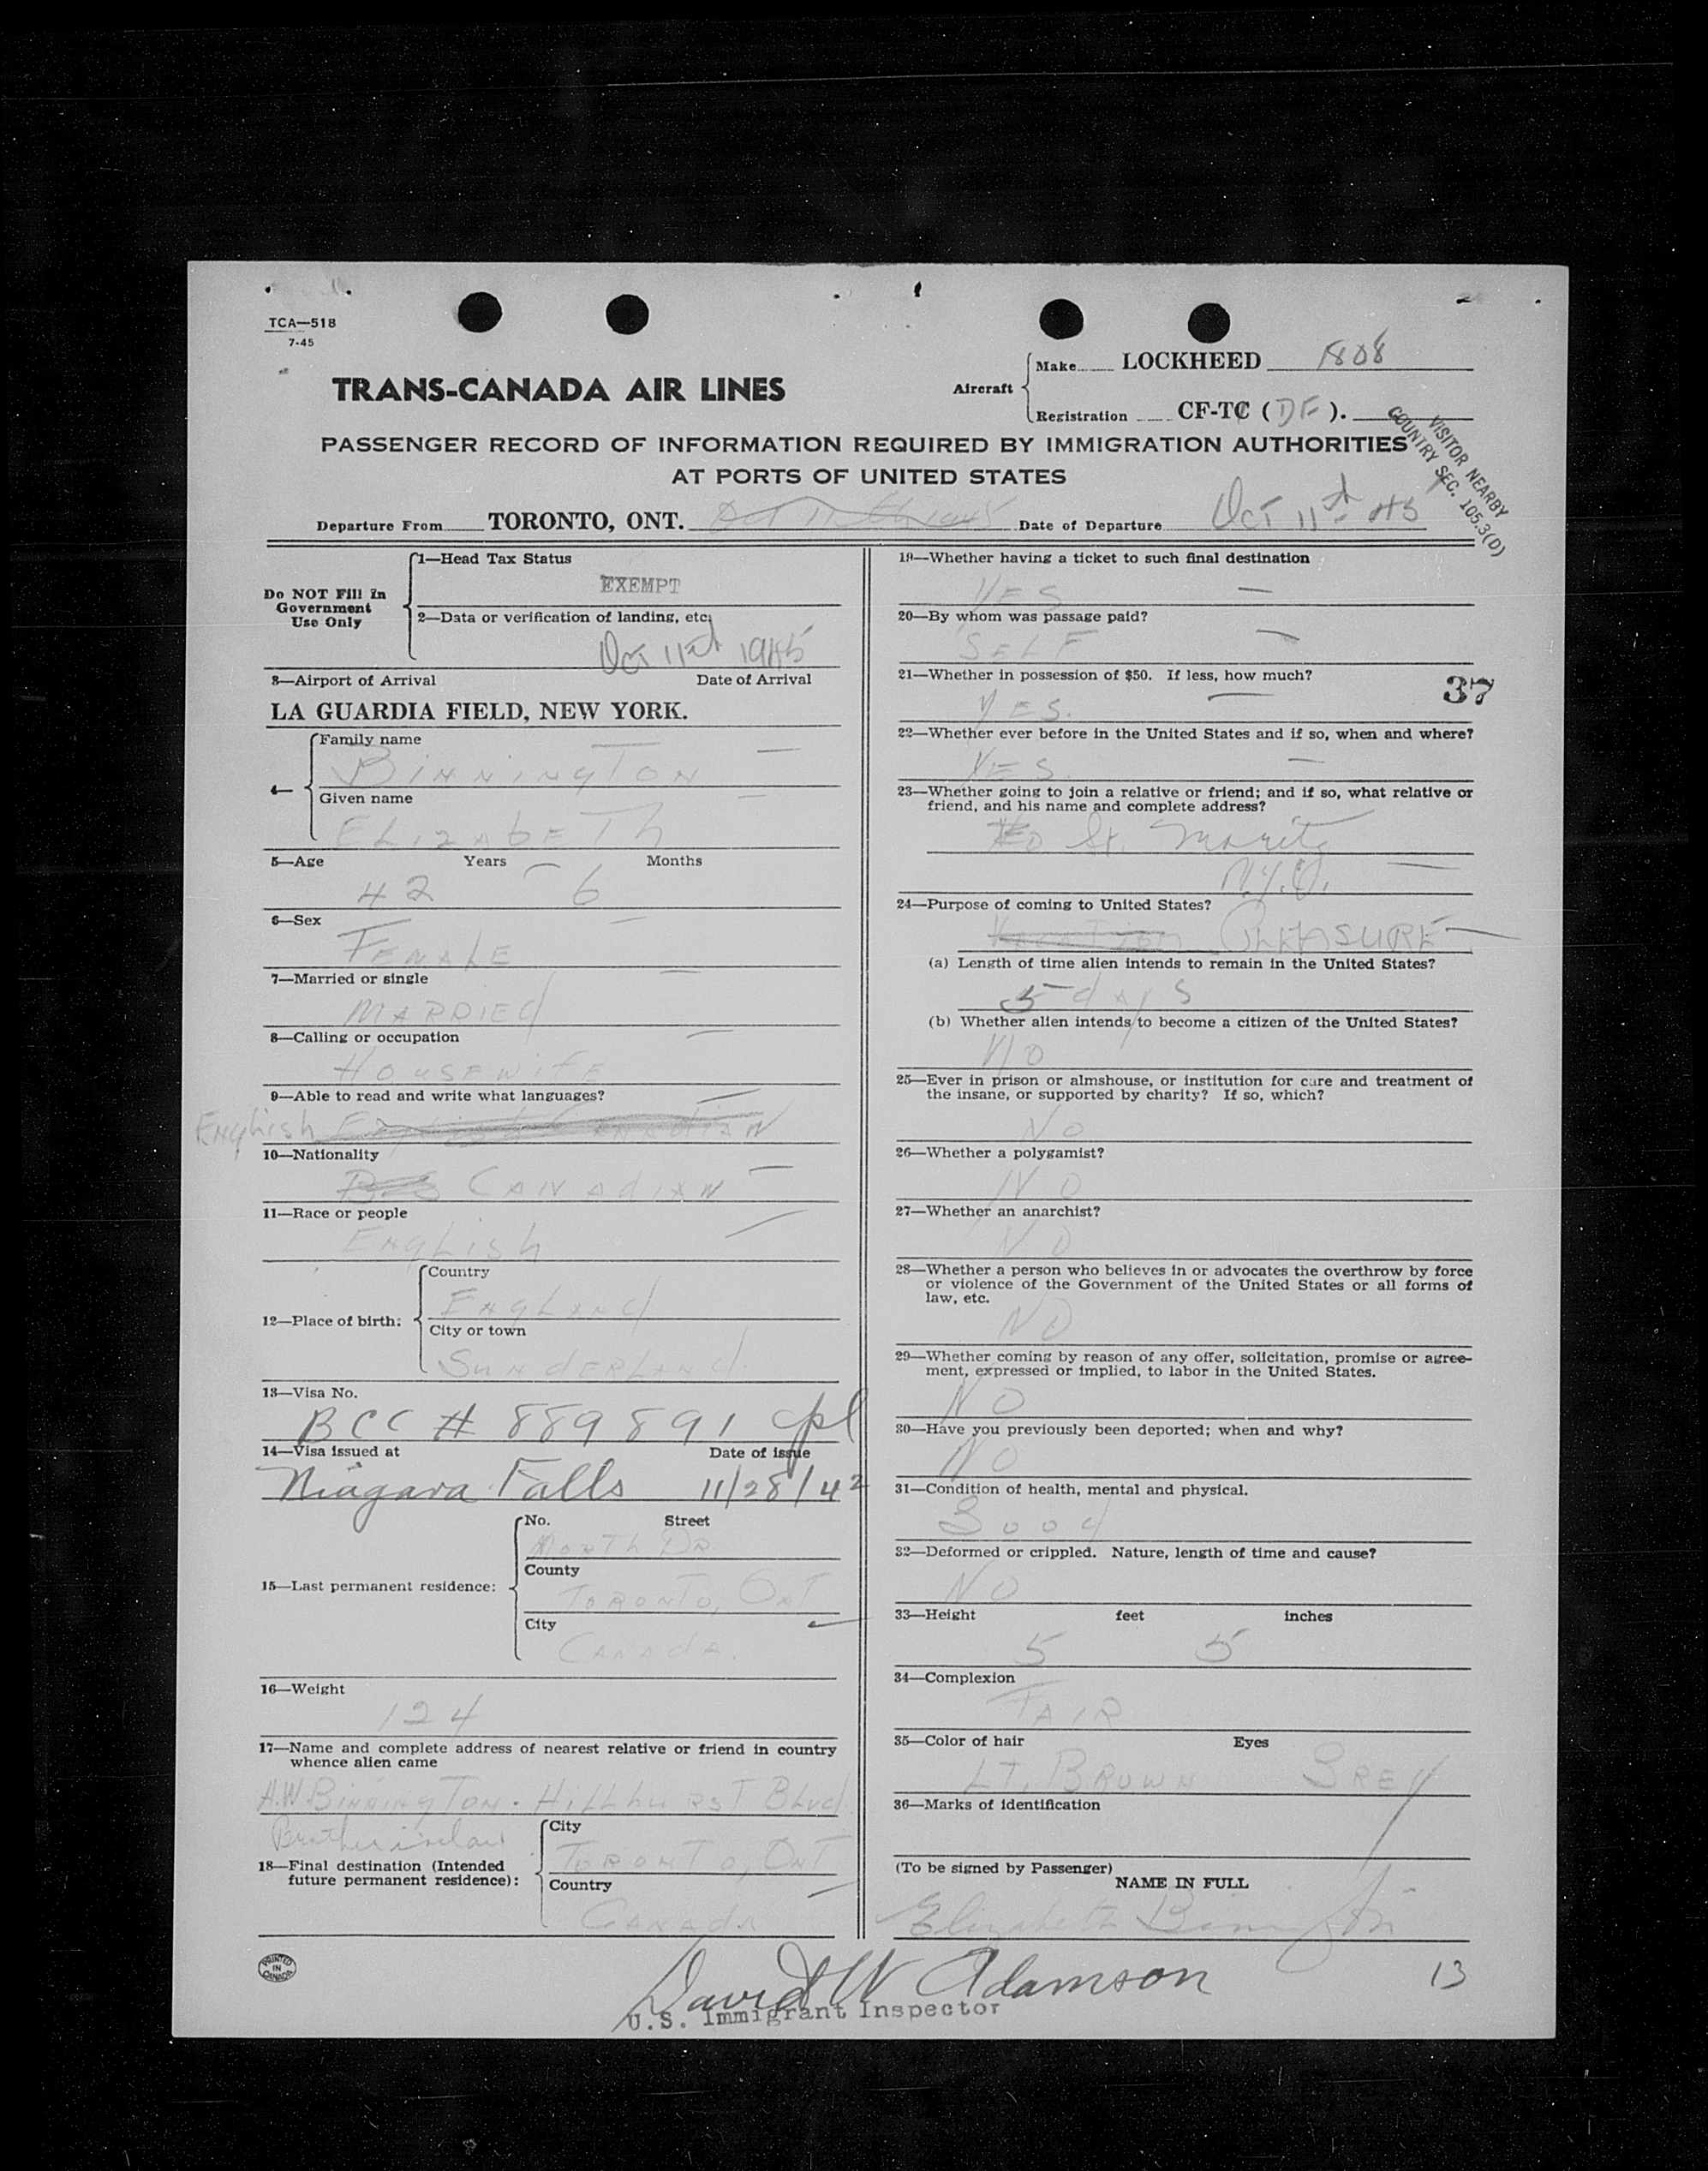 TCA—518
7-45
Make LOCKHEED 1808
TRANS-CANADA AIR LINES
Aircraft
Registration CF-TC (DF).
VISITOR NEARBY
COUNTRY SEC. 105.3(D)
PASSENGER RECORD OF INFORMATION REQUIRED BY IMMIGRATION AUTHORITIES
AT PORTS OF UNITED STATES
Departure From TORONTO, ONT. Date of Departure Oct 11th 45
Do NOT Fill in
Government
Use Only
1—Head Tax Status
EXEMPT
2—Data or verification of landing, etc.
Oct 11th 1945
3—Airport of Arrival Date of Arrival
LA GUARDIA FIELD, NEW YORK.
4—
Family name
BINNINGTON
Given name
ELIZABETH
5—Age Years Months
42 6
6—Sex
FEMALE
7—Married or single
MARRIEd
8—Calling or occupation
HOUSEWIFE
9—Able to read and write what languages?
English
10—Nationality
CANADIAN
11—Race or people
ENGLISH
12—Place of birth:
Country
ENGLANd
City or town
SUNdERLANd
13—Visa No.
BCC # 889891 cpl
14—Visa issued at Date of issue
Niagara Falls 11/28/42
15—Last permanent residence:
No. Street
NORTH DR
County
TORONTO, ONT
City
CANADA.
16—Weight
124
17—Name and complete address of nearest relative or friend in country
whence alien came
H.W. BINNINGTON. HILLHURST BLVd
Brother in law
18—Final destination (Intended
future permanent residence):
City
TORONTO, ONT
Country
CANADA
19—Whether having a ticket to such final destination
YES
20—By whom was passage paid?
SELF
21—Whether in possession of $50. If less, how much?
37
YES.
22—Whether ever before in the United States and if so, when and where?
YES
23—Whether going to join a relative or friend; and if so, what relative or
friend, and his name and complete address?
St. Moritz
N.Y.C.
24—Purpose of coming to United States?
PLEASURE
(a) Length of time alien intends to remain in the United States?
5 days
(b) Whether alien intends to become a citizen of the United States?
NO
25—Ever in prison or almshouse, or institution for care and treatment of
the insane, or supported by charity? If so, which?
NO
26—Whether a polygamist?
NO
27—Whether an anarchist?
NO
28—Whether a person who believes in or advocates the overthrow by force
or violence of the Government of the United States or all forms of
law, etc.
NO
29—Whether coming by reason of any offer, solicitation, promise or agree-
ment, expressed or implied, to labor in the United States.
NO
30—Have you previously been deported; when and why?
NO
31—Condition of health, mental and physical.
Good
32—Deformed or crippled. Nature, length of time and cause?
NO
33—Height feet inches
5 5
34—Complexion
FAIR
35—Color of hair Eyes
LT. BROWN GREY
36—Marks of identification
(To be signed by Passenger)
NAME IN FULL
Elizabeth Binnington
PRINTED
IN
CANADA
David W Adamson
13
U.S. Immigrant Inspector